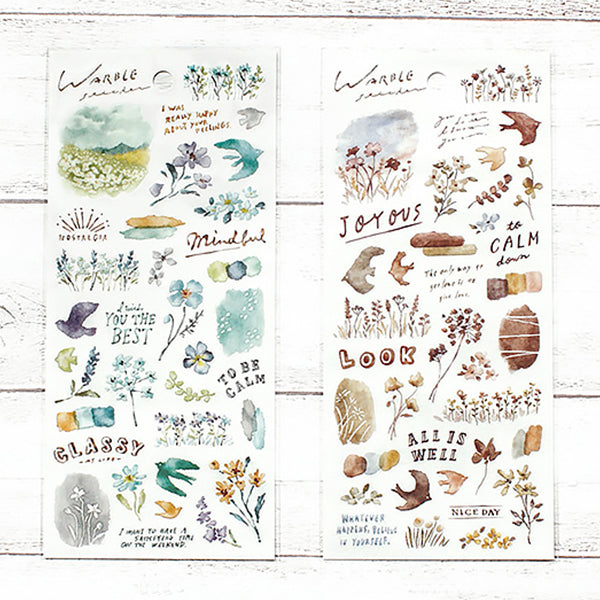 WARBLE
I WAS
REALLY HAPPY
ABOUT YOUR
FEELINGS.
NOSTALGIA
Mindful
YOU THE
BEST
TO BE
CALM
CLASSY
I WANT TO HAVE A
TIME
ON THE WEEKEND.
WARBLE
JOYOUS
to
CALM
down
The only way
give love.
LOOK
ALL IS
WELL
NICE DAY
WHATEVER
HAPPENS, BELIEVE
IN YOURSELF.